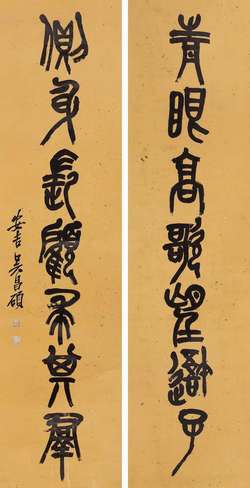 青眼高歌望吾子
側身長顧求其羣
安吉吳昌碩